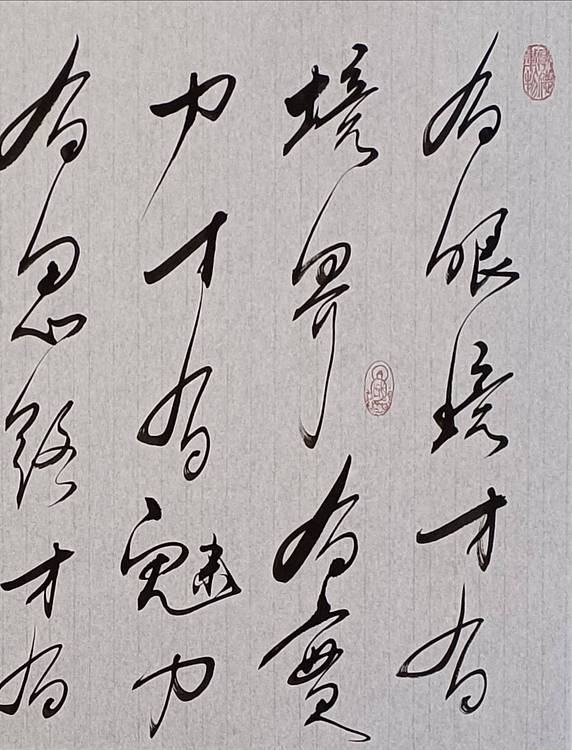 有眼境才有
境界有實
力才有魅力
有思路才有